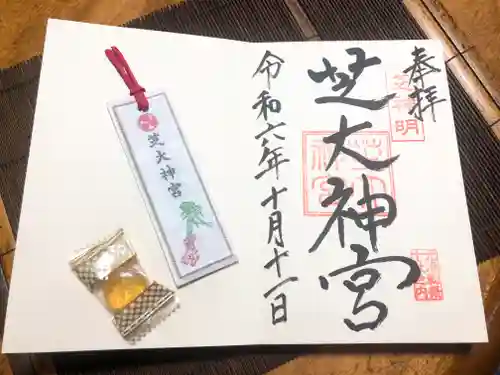 奉拝
芝大神宮
令和六年十月十一日
芝大神宮